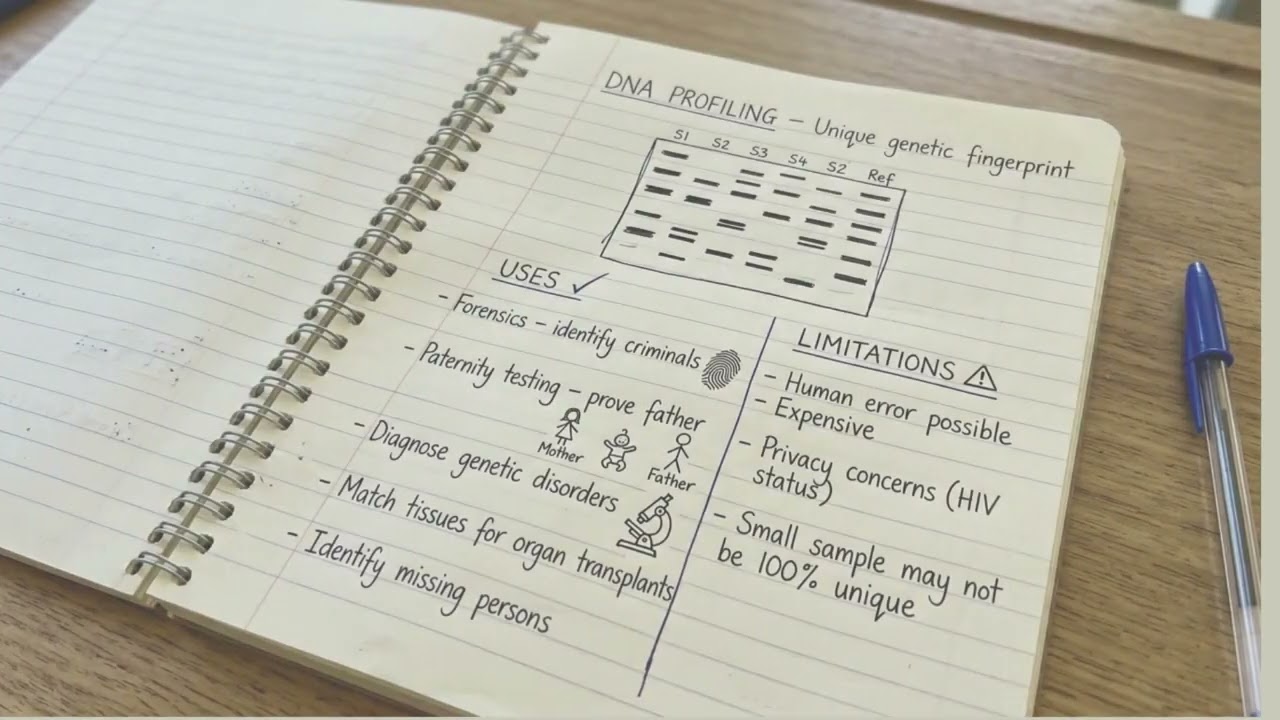 DNA PROFILING – Unique genetic fingerprint
S1 S2 S3 S4 S2 Ref
USES
- Forensics – identify criminals
- Paternity testing – prove father
Mother
Father
- Diagnose genetic disorders
- Match tissues for organ transplants
- Identify missing persons
LIMITATIONS
- Human error possible
- Expensive
- Privacy concerns (HIV
status)
- Small sample may not
be 100% unique